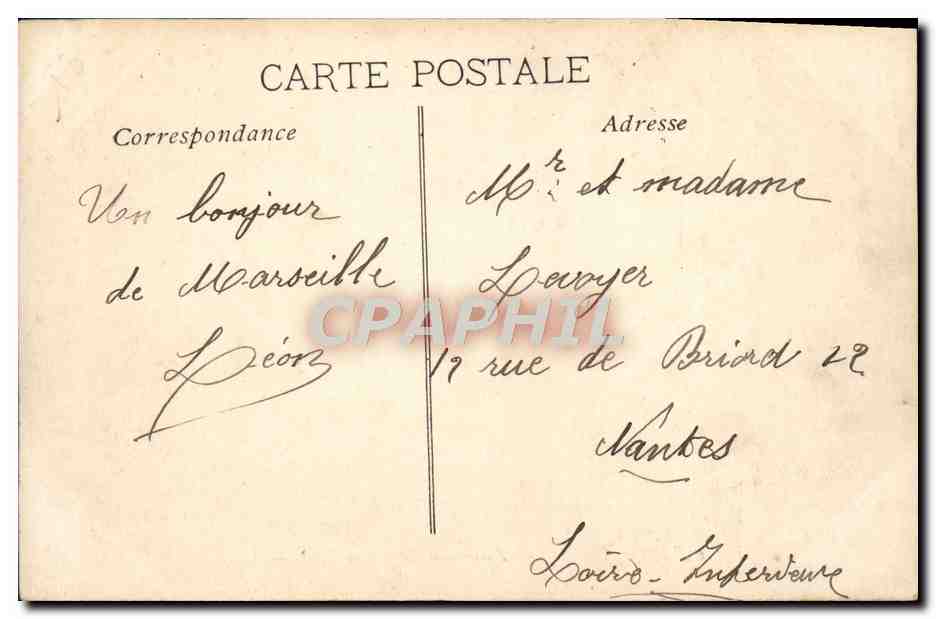 CARTE POSTALE
Correspondance
Un bonjour
de Marseille
Léon
Adresse
Mr et madame
Levoyer
12 rue de Briord 12
Nântes
Loire-Inferieure
CPAPHIL